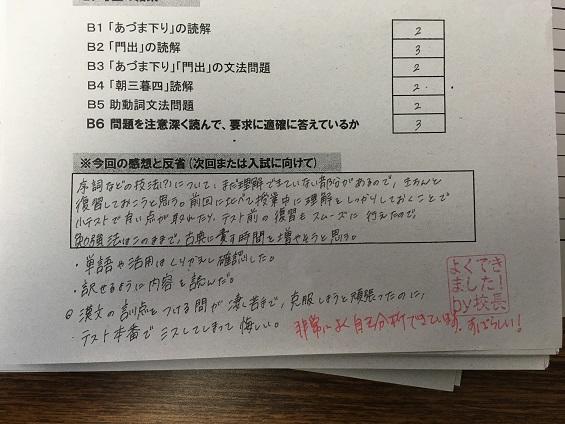 B1「あづま下り」の読解 2
B2「門出」の読解 3
B3「あづま下り」「門出」の文法問題 2
B4「朝三暮四」読解 2
B5 助動詞文法問題 2
B6 問題を注意深く読んで、要求に適確に答えているか 3
※今回の感想と反省(次回または入試に向けて)
序詞などの技法(?)について、まだ理解できていない部分があるので、きちんと
復習しておこうと思う。前回に比べて授業中に理解をしっかりしておくことで
小テストで良い点が取れたり、テスト前の復習もスムーズに行えたので、
勉強法はこのままで、古典に費す時間を増やそうと思う。
・単語や活用はくりかえし確認した。
・訳せるように内容を読んだ。
漢文の訓点をつける問が凄く苦手で、克服しようと頑張ったのに、
・テスト本番でミスしてしまって悔しい。
よくでき
ました!
by校長
非常によく自己分析できている。すばらしい!